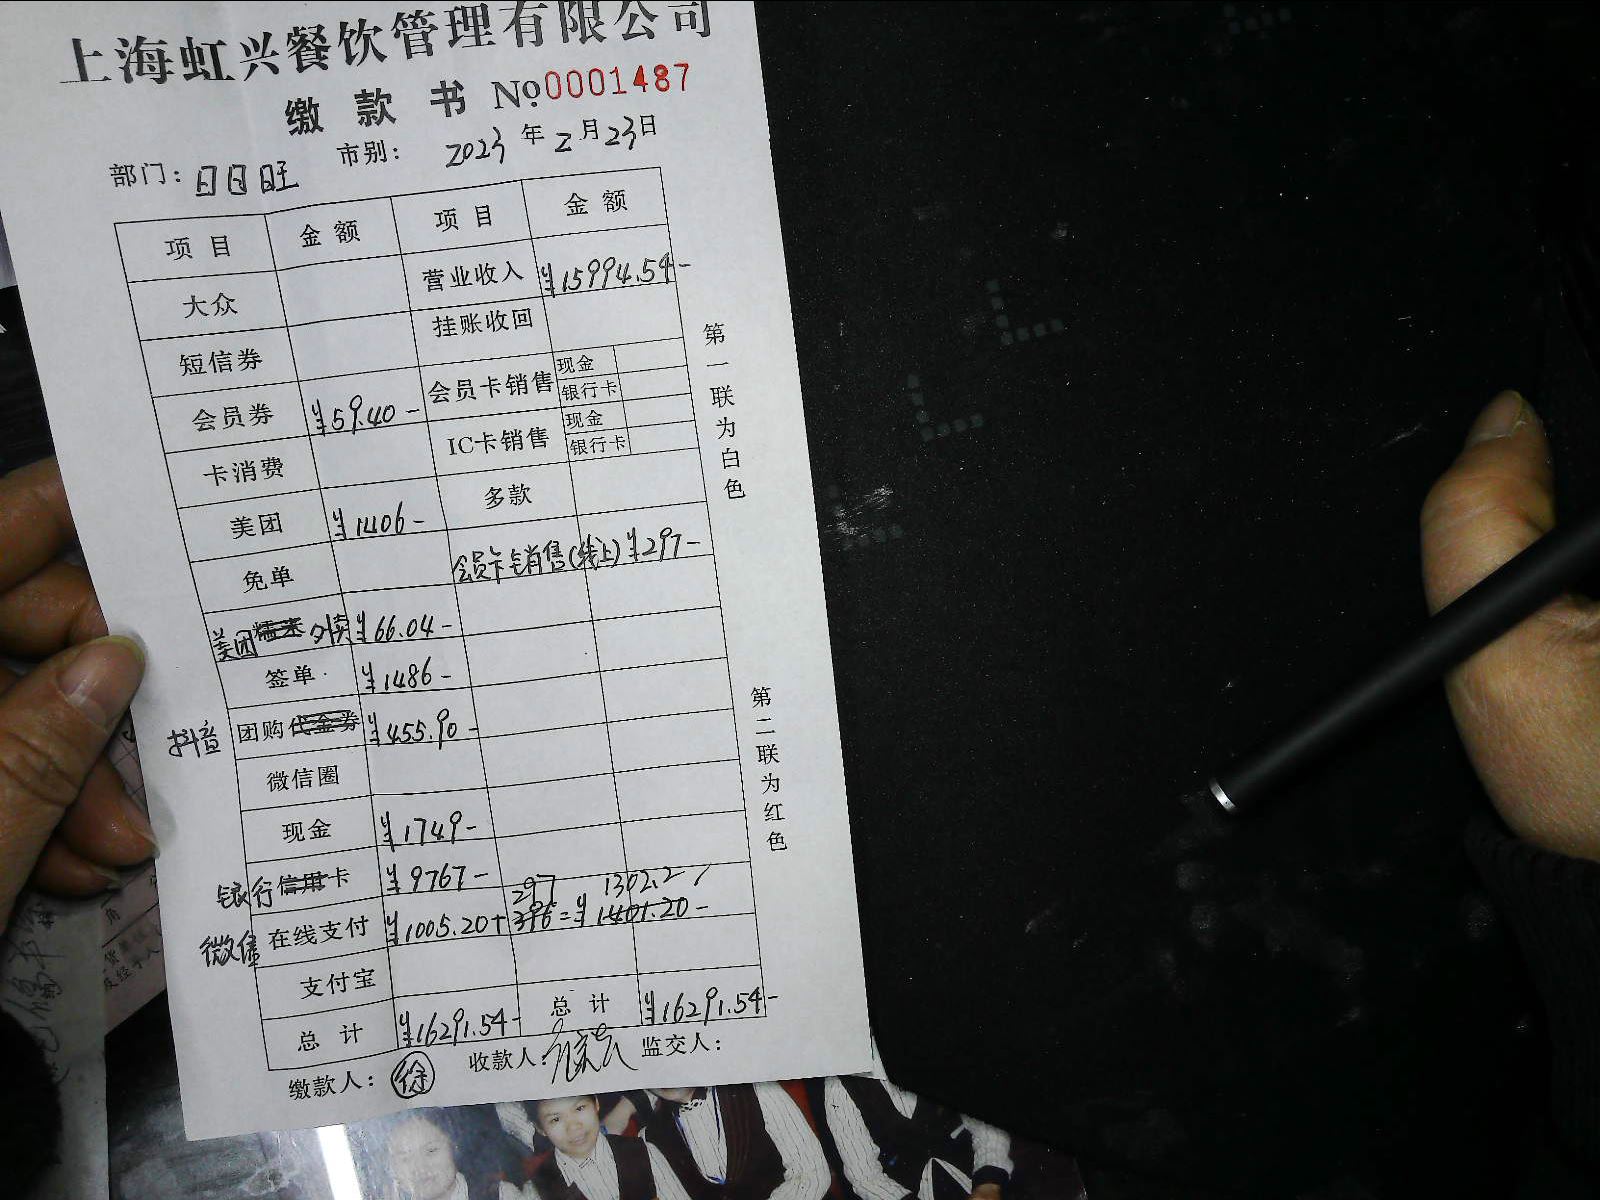 上海虹兴餐饮管理有限公司
缴款书 № 0001487
部门: 日日旺 市别: 2023年2月23日
项目 金额 项目 金额
大众 营业收入 ¥15994.54-
短信券 挂账收回
会员券 ¥59.40- 会员卡销售 现金
银行卡
卡消费 IC卡销售 现金
银行卡
美团 ¥1406- 多款
免单 会员卡销售(线上) ¥297-
美团 外卖 ¥66.04-
签单 ¥1486-
抖音 团购代金券 ¥455.90-
微信圈
现金 ¥1749-
银行信用卡 ¥9767-
297 1302.2
微信 在线支付 ¥1005.20+396=¥1401.20-
支付宝
总计 ¥16291.54- 总计 ¥16291.54-
缴款人: 徐 收款人: 监交人:
第一联为白色
第二联为红色